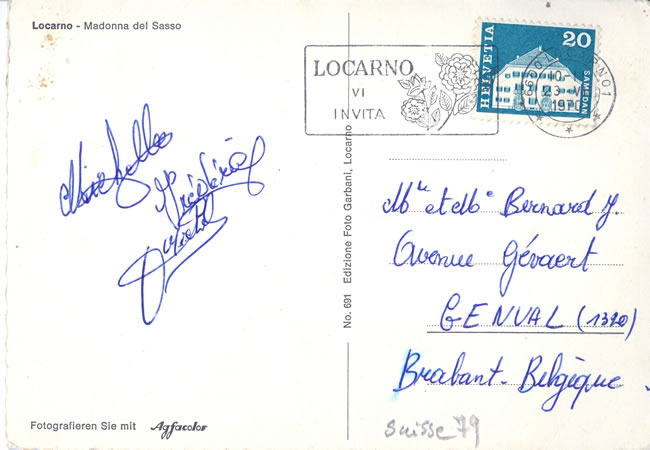 Locarno - Madonna del Sasso
LOCARNO
VI
INVITA
HELVETIA
20
SAMEDAN
1970
Frédéric
No. 691 Edizione Foto Garbani, Locarno
Mr et Me Bernard J.
Avenue Gévaert
GENVAL (1320)
Brabant-Belgique
Fotografieren Sie mit Agfacolor
Suisse 79